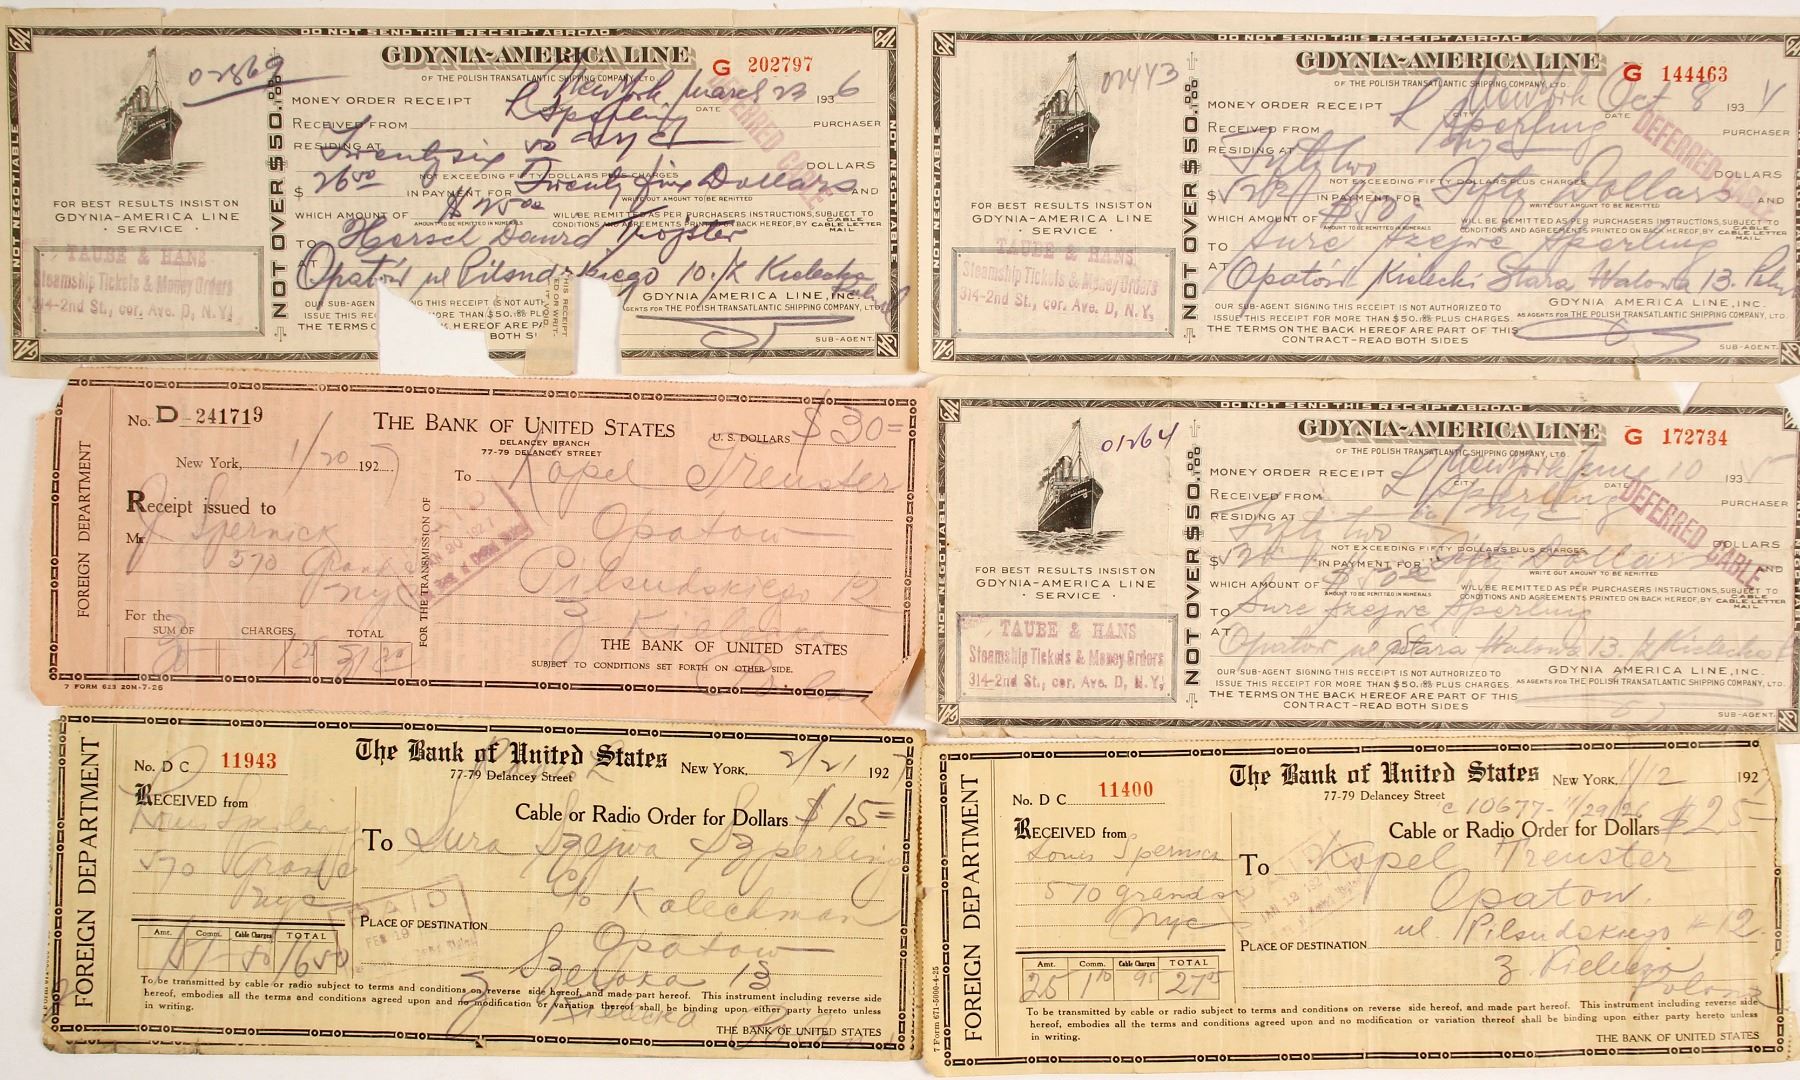 DO NOT SEND THIS RECEIPT ABROAD
GAL
GAL
GDYNIA-AMERICA LINE
OF THE POLISH TRANSATLANTIC SHIPPING COMPANY, LTD.
G 202797
02869
MONEY ORDER RECEIPT New York, March 23 1936
CITY DATE
RECEIVED FROM L Sperling PURCHASER
RESIDING AT NYC
DEFERRED CABLE
Twenty six 50 DOLLARS
NOT EXCEEDING FIFTY DOLLARS PLUS CHARGES
$ 26 50 IN PAYMENT FOR Twenty five Dollars AND
WRITE OUT AMOUNT TO BE REMITTED
WHICH AMOUNT OF $ 25 00 WILL BE REMITTED AS PER PURCHASERS INSTRUCTIONS, SUBJECT TO
AMOUNT TO BE REMITTED IN NUMERALS CONDITIONS AND AGREEMENTS PRINTED ON BACK HEREOF, BY CABLE LETTER MAIL
TO Hersch Dawid
AT Opatów ul Pilsudskiego 10. Kielecka
NOT NEGOTIABLE
NOT OVER $50.00/100
NOT NEGOTIABLE
FOR BEST RESULTS INSIST ON
GDYNIA-AMERICA LINE
· SERVICE ·
TAUBE & HANS
Steamship Tickets & Money Orders
314-2nd St., cor. Ave. D, N.Y.
OUR SUB-AGEN ING THIS RECEIPT IS NOT AUTH
ISSUE THIS REC ORE THAN $50.00 PL
THE TERMS HEREOF ARE PA
BOTH SI
THIS RECEIPT
GDYNIA AMERICA LINE, INC.
AGENTS FOR THE POLISH TRANSATLANTIC SHIPPING COMPANY, LTD.
SUB-AGENT.
DO NOT SEND THIS RECEIPT ABROAD
GAL
GDYNIA-AMERICA LINE
OF THE POLISH TRANSATLANTIC SHIPPING COMPANY, LTD.
G 144463
02443
MONEY ORDER RECEIPT New York Oct 8 193
CITY DATE
RECEIVED FROM L Sperling PURCHASER
RESIDING AT NYC
DEFERRED CABLE
Fifty two DOLLARS
NOT EXCEEDING FIFTY DOLLARS PLUS CHARGES
$ 52 IN PAYMENT FOR Fifty Dollars AND
WRITE OUT AMOUNT TO BE REMITTED
WHICH AMOUNT OF $50 WILL BE REMITTED AS PER PURCHASERS INSTRUCTIONS, SUBJECT TO
AMOUNT TO BE REMITTED IN NUMERALS CONDITIONS AND AGREEMENTS PRINTED ON BACK HEREOF, BY CABLE LETTER MAIL
TO Sure Szejwe Sperling
AT Opatów Kielecki Stara Walowa 13.
NOT NEGOTIABLE
NOT OVER $50.00/100
FOR BEST RESULTS INSIST ON
GDYNIA-AMERICA LINE
· SERVICE ·
TAUBE & HANS
Steamship Tickets & Money Orders
314-2nd St., cor. Ave. D, N.Y.
OUR SUB-AGENT SIGNING THIS RECEIPT IS NOT AUTHORIZED TO
ISSUE THIS RECEIPT FOR MORE THAN $50.00 PLUS CHARGES.
THE TERMS ON THE BACK HEREOF ARE PART OF THIS
CONTRACT-READ BOTH SIDES
GDYNIA AMERICA LINE, INC.
AS AGENTS FOR THE POLISH TRANSATLANTIC SHIPPING COMPANY, LTD.
SUB-AGENT.
FOREIGN DEPARTMENT
No. D-241719
THE BANK OF UNITED STATES
DELANCEY BRANCH
77-79 DELANCEY STREET
U.S. DOLLARS $30=
New York, 1/20 1927
To Kopel Treuster
Receipt issued to
Mr. J. Spernick
570 Grand
NYC
FOR THE TRANSMISSION OF
PAID
JAN 20 1927
Opatow
Pilsudskiego 12
Z Kielecka
For the
SUM OF CHARGES, TOTAL
30
THE BANK OF UNITED STATES
SUBJECT TO CONDITIONS SET FORTH ON OTHER SIDE.
7 FORM 623 20M-7-26
DO NOT SEND THIS RECEIPT ABROAD
GDYNIA-AMERICA LINE
OF THE POLISH TRANSATLANTIC SHIPPING COMPANY, LTD.
G 172734
01264
MONEY ORDER RECEIPT New York 10 193
CITY DATE
RECEIVED FROM L Sperling PURCHASER
RESIDING AT NYC
DEFERRED CABLE
Fifty two DOLLARS
NOT EXCEEDING FIFTY DOLLARS PLUS CHARGES
IN PAYMENT FOR Fifty Dollars AND
WRITE OUT AMOUNT TO BE REMITTED
WHICH AMOUNT OF $50 00 WILL BE REMITTED AS PER PURCHASERS INSTRUCTIONS, SUBJECT TO
AMOUNT TO BE REMITTED IN NUMERALS CONDITIONS AND AGREEMENTS PRINTED ON BACK HEREOF, BY CABLE LETTER MAIL
TO Sure Szejwe Sperling
AT Opatow ul Stara Walowa 13. Z Kielecka
NOT NEGOTIABLE
NOT OVER $50.00/100
FOR BEST RESULTS INSIST ON
GDYNIA-AMERICA LINE
· SERVICE ·
TAUBE & HANS
Steamship Tickets & Money Orders
314-2nd St., cor. Ave. D, N.Y.
OUR SUB-AGENT SIGNING THIS RECEIPT IS NOT AUTHORIZED TO
ISSUE THIS RECEIPT FOR MORE THAN $50.00 PLUS CHARGES
THE TERMS ON THE BACK HEREOF ARE PART OF THIS
CONTRACT-READ BOTH SIDES
GDYNIA AMERICA LINE, INC.
AS AGENTS FOR THE POLISH TRANSATLANTIC SHIPPING COMPANY, LTD.
SUB-AGENT.
FOREIGN DEPARTMENT
No. D C 11943
The Bank of United States
77-79 Delancey Street
NEW YORK, 2/21 1927
RECEIVED from
Louis Sperling
570 Grand
NYC
Cable or Radio Order for Dollars $15=
To Sura Szejwa Szperling
c/o Kalechman
PAID
FEB 19
PLACE OF DESTINATION Opatow
Szeroka 13
Z Kielecka
Amt. Comm. Cable Charges TOTAL
15 1 50 16 50
To be transmitted by cable or radio subject to terms and conditions on reverse side hereof, and made part hereof. This instrument including reverse side
hereof, embodies all the terms and conditions agreed upon and no modification or variation thereof shall be binding upon either party hereto unless
in writing.
THE BANK OF UNITED STATES
FOREIGN DEPARTMENT
No. D C 11400
The Bank of United States
77-79 Delancey Street
NEW YORK, 1/12 1927
C 10677- 11/29/26
RECEIVED from
Louis Spernick
570 Grand
NYC
Cable or Radio Order for Dollars $25-
To Kopel Treuster
Opatow.
PAID
JAN 12 1927
PLACE OF DESTINATION ul Pilsudskiego #12
Z Kielecka
Polona
Amt. Comm. Cable Charges TOTAL
25 1 10 95 27 05
To be transmitted by cable or radio subject to terms and conditions on reverse side hereof, and made part hereof. This instrument including reverse side
hereof, embodies all the terms and conditions agreed upon and no modification or variation thereof shall be binding upon either party hereto unless
in writing.
THE BANK OF UNITED STATES
7 Form 671-5000-4-25